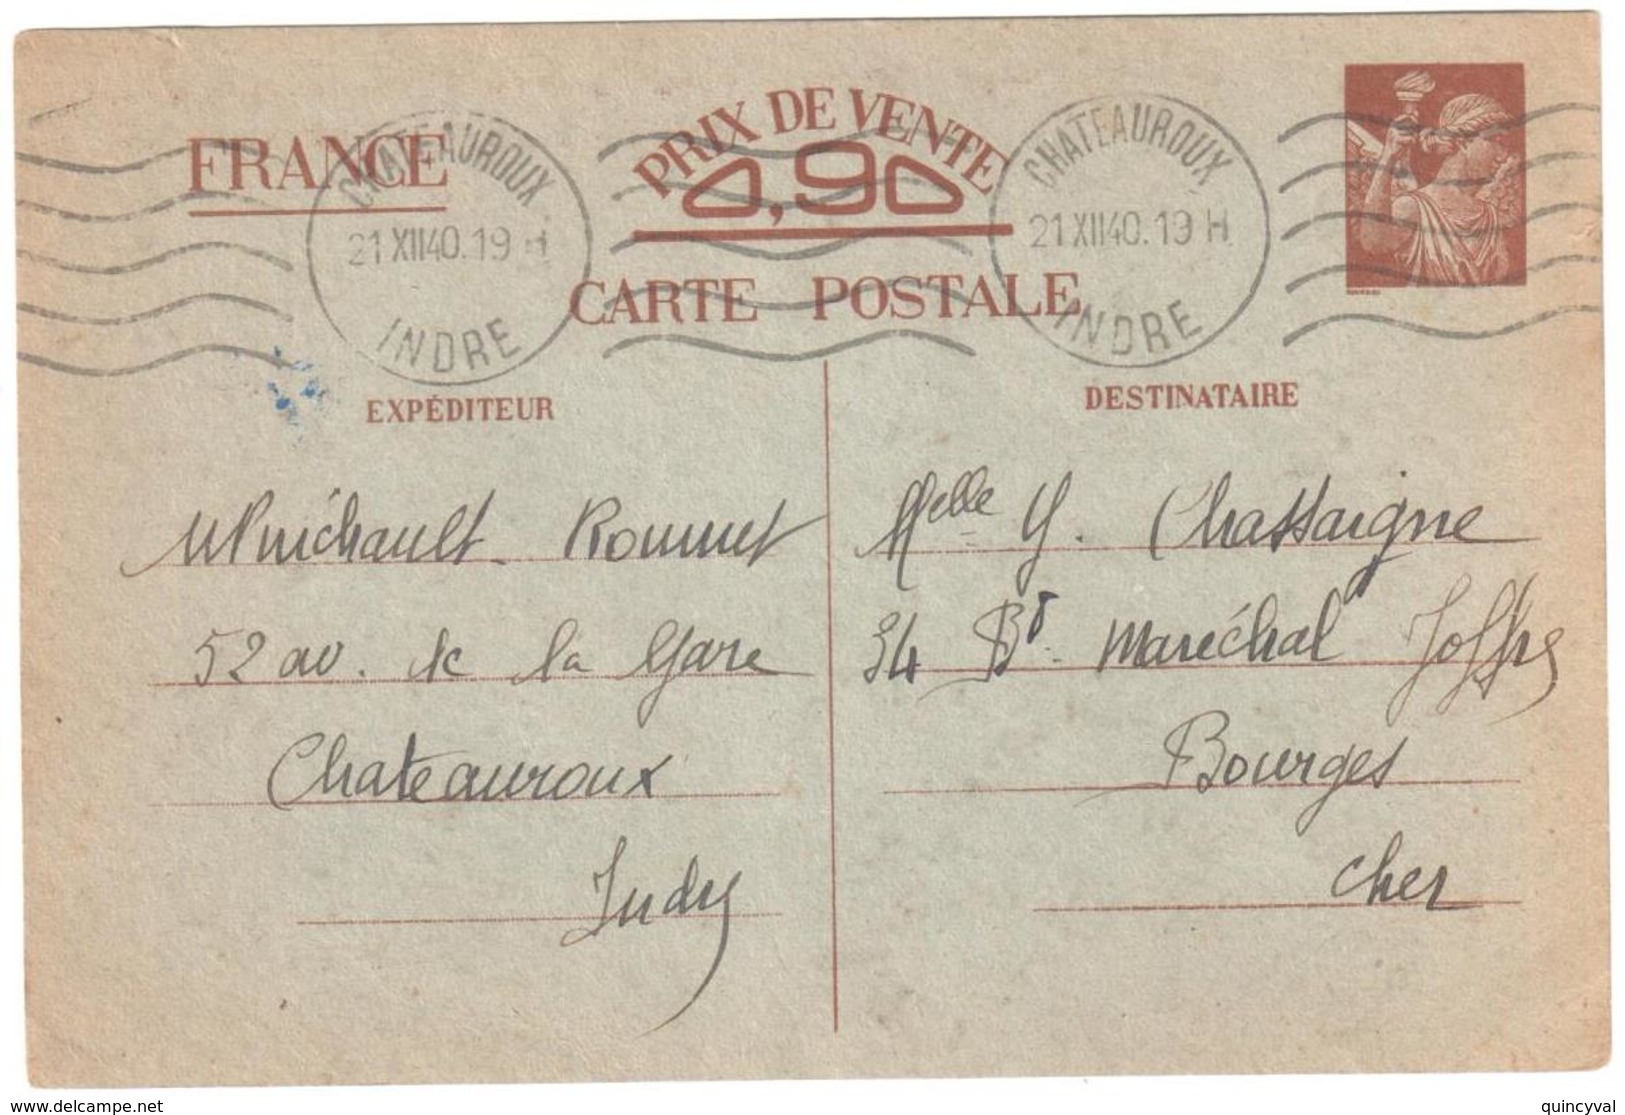 FRANCE
PRIX DE VENTE
0,90
CARTE POSTALE
CHATEAUROUX
21 XII 40. 19 H
INDRE
CHATEAUROUX
21 XII 40. 19 H
INDRE
EXPÉDITEUR
52 av. de la Gare
Chateauroux
Indre
DESTINATAIRE
Melle Y. Chassaigne
34 Bd Maréchal Joffre
Bourges
Cher
www.delcampe.net
quincyval